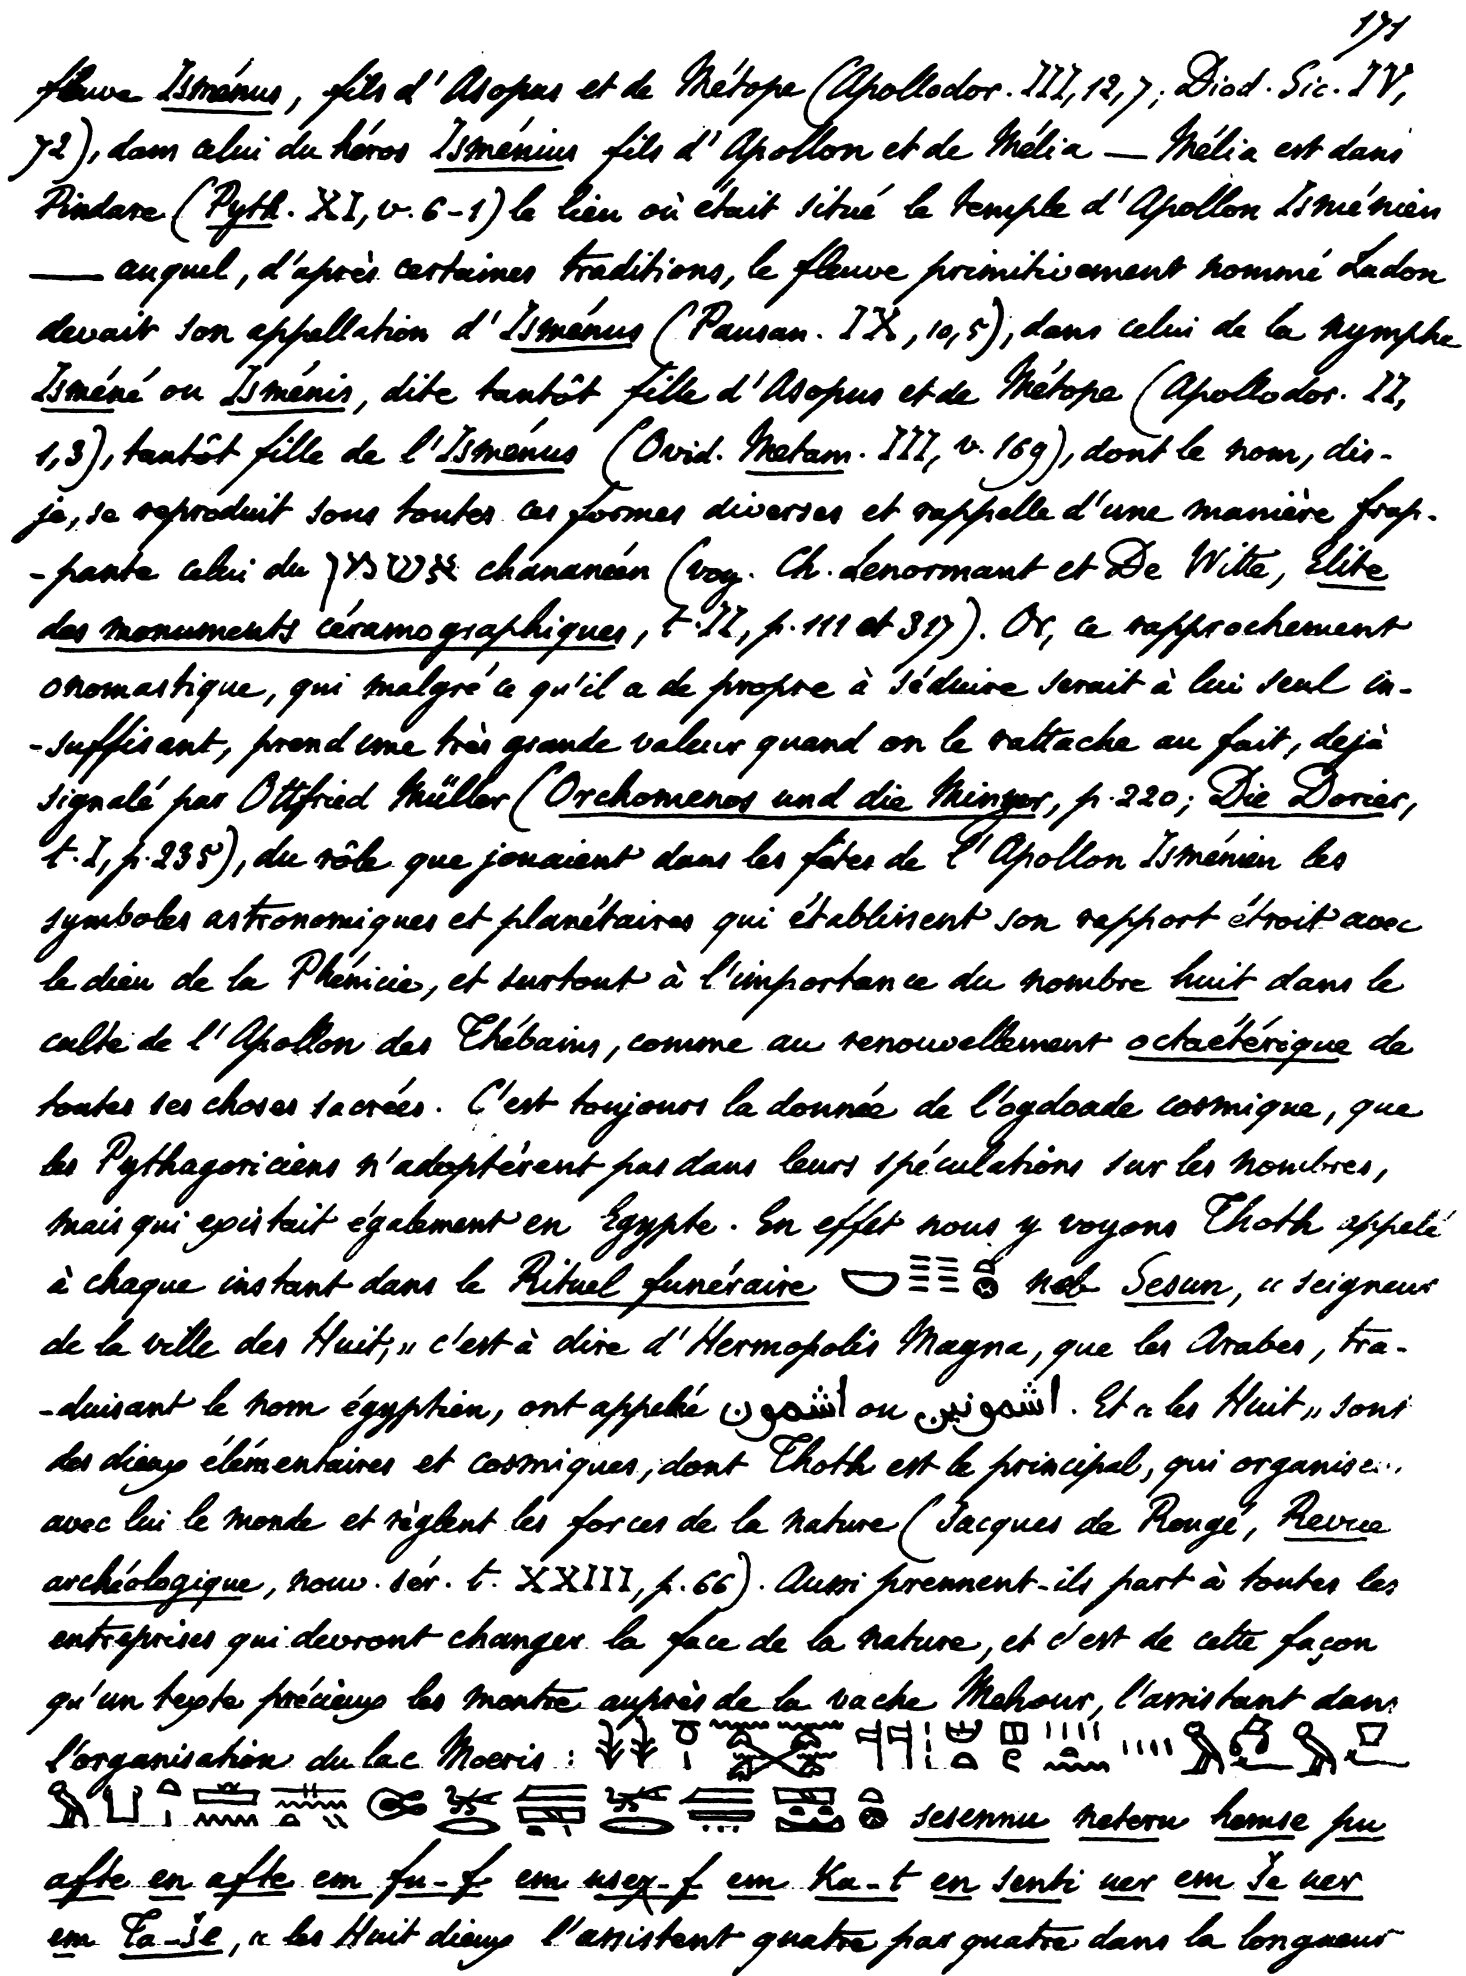 171
fleuve Isménus, fils d'Asopus et de Métope (Apollodor. III, 12, 7; Diod. Sic. IV,
72), dans celui du héros Isménius fils d'Apollon et de Mélia — Mélia est dans
Pindare (Pyth. XI, v. 6-1) le lieu où était situé le temple d'Apollon Isménien
— auquel, d'après certaines traditions, le fleuve primitivement nommé Ladon
devait son appellation d'Isménus (Pausan. IX, 10, 5), dans celui de la nymphe
Isméné ou Isménis, dite tantôt fille d'Asopus et de Métope (Apollodor. II,
1, 3), tantôt fille de l'Isménus (Ovid. Metam. III, v. 169), dont le nom, dis-
je, se reproduit sous toutes ces formes diverses et rappelle d'une manière frap-
-pante celui du אשמן chananéen (voy. Ch. Lenormant et De Witte, Elite
des monuments céramographiques, t. II, p. 111 et 317). Or, ce rapprochement
onomastique, qui malgré ce qu'il a de propre à séduire serait à lui seul in-
-suffisant, prend une très grande valeur quand on le rattache au fait, dejà
signalé par Ottfried Müller (Orchomenos und die Minyer, p. 220; Die Dorier,
t. I, p. 235), du rôle que jouaient dans les fêtes de l'Apollon Isménien les
symboles astronomiques et planétaires qui établissent son rapport étroit avec
le dieu de la Phénicie, et surtout à l'importance du nombre huit dans le
culte de l'Apollon des Thébains, comme au renouvellement octaétérique de
toutes ses choses sacrées. C'est toujours la donnée de l'ogdoade cosmique, que
les Pythagoriciens n'adoptèrent pas dans leurs spéculations sur les nombres,
mais qui existait également en Egypte. En effet nous y voyons Thoth appelé
à chaque instant dans le Rituel funéraire neb Sesun, « seigneur
de la ville des Huit, » c'est à dire d'Hermopolis Magna, que les Arabes, tra-
-duisant le nom égyptien, ont appelé أشمون ou أشمونين. Et « les Huit » sont
des dieux élémentaires et cosmiques, dont Thoth est le principal, qui organise
avec lui le monde et règlent les forces de la nature (Jacques de Rougé, Revue
archéologique, nouv. sér. t. XXIII, p. 66). Aussi prennent-ils part à toutes les
entreprises qui devront changer la face de la nature, et c'est de cette façon
qu'un texte précieux les montre auprès de la vache Mehour, l'assistant dans
l'organisation du lac Moeris :
sesennu neteru hemse pu
afte en afte em fu-f em useχ-f em Ka-t en senti uer em še uer
em Ta-še, « les Huit dieux l'assistent quatre par quatre dans la longueur